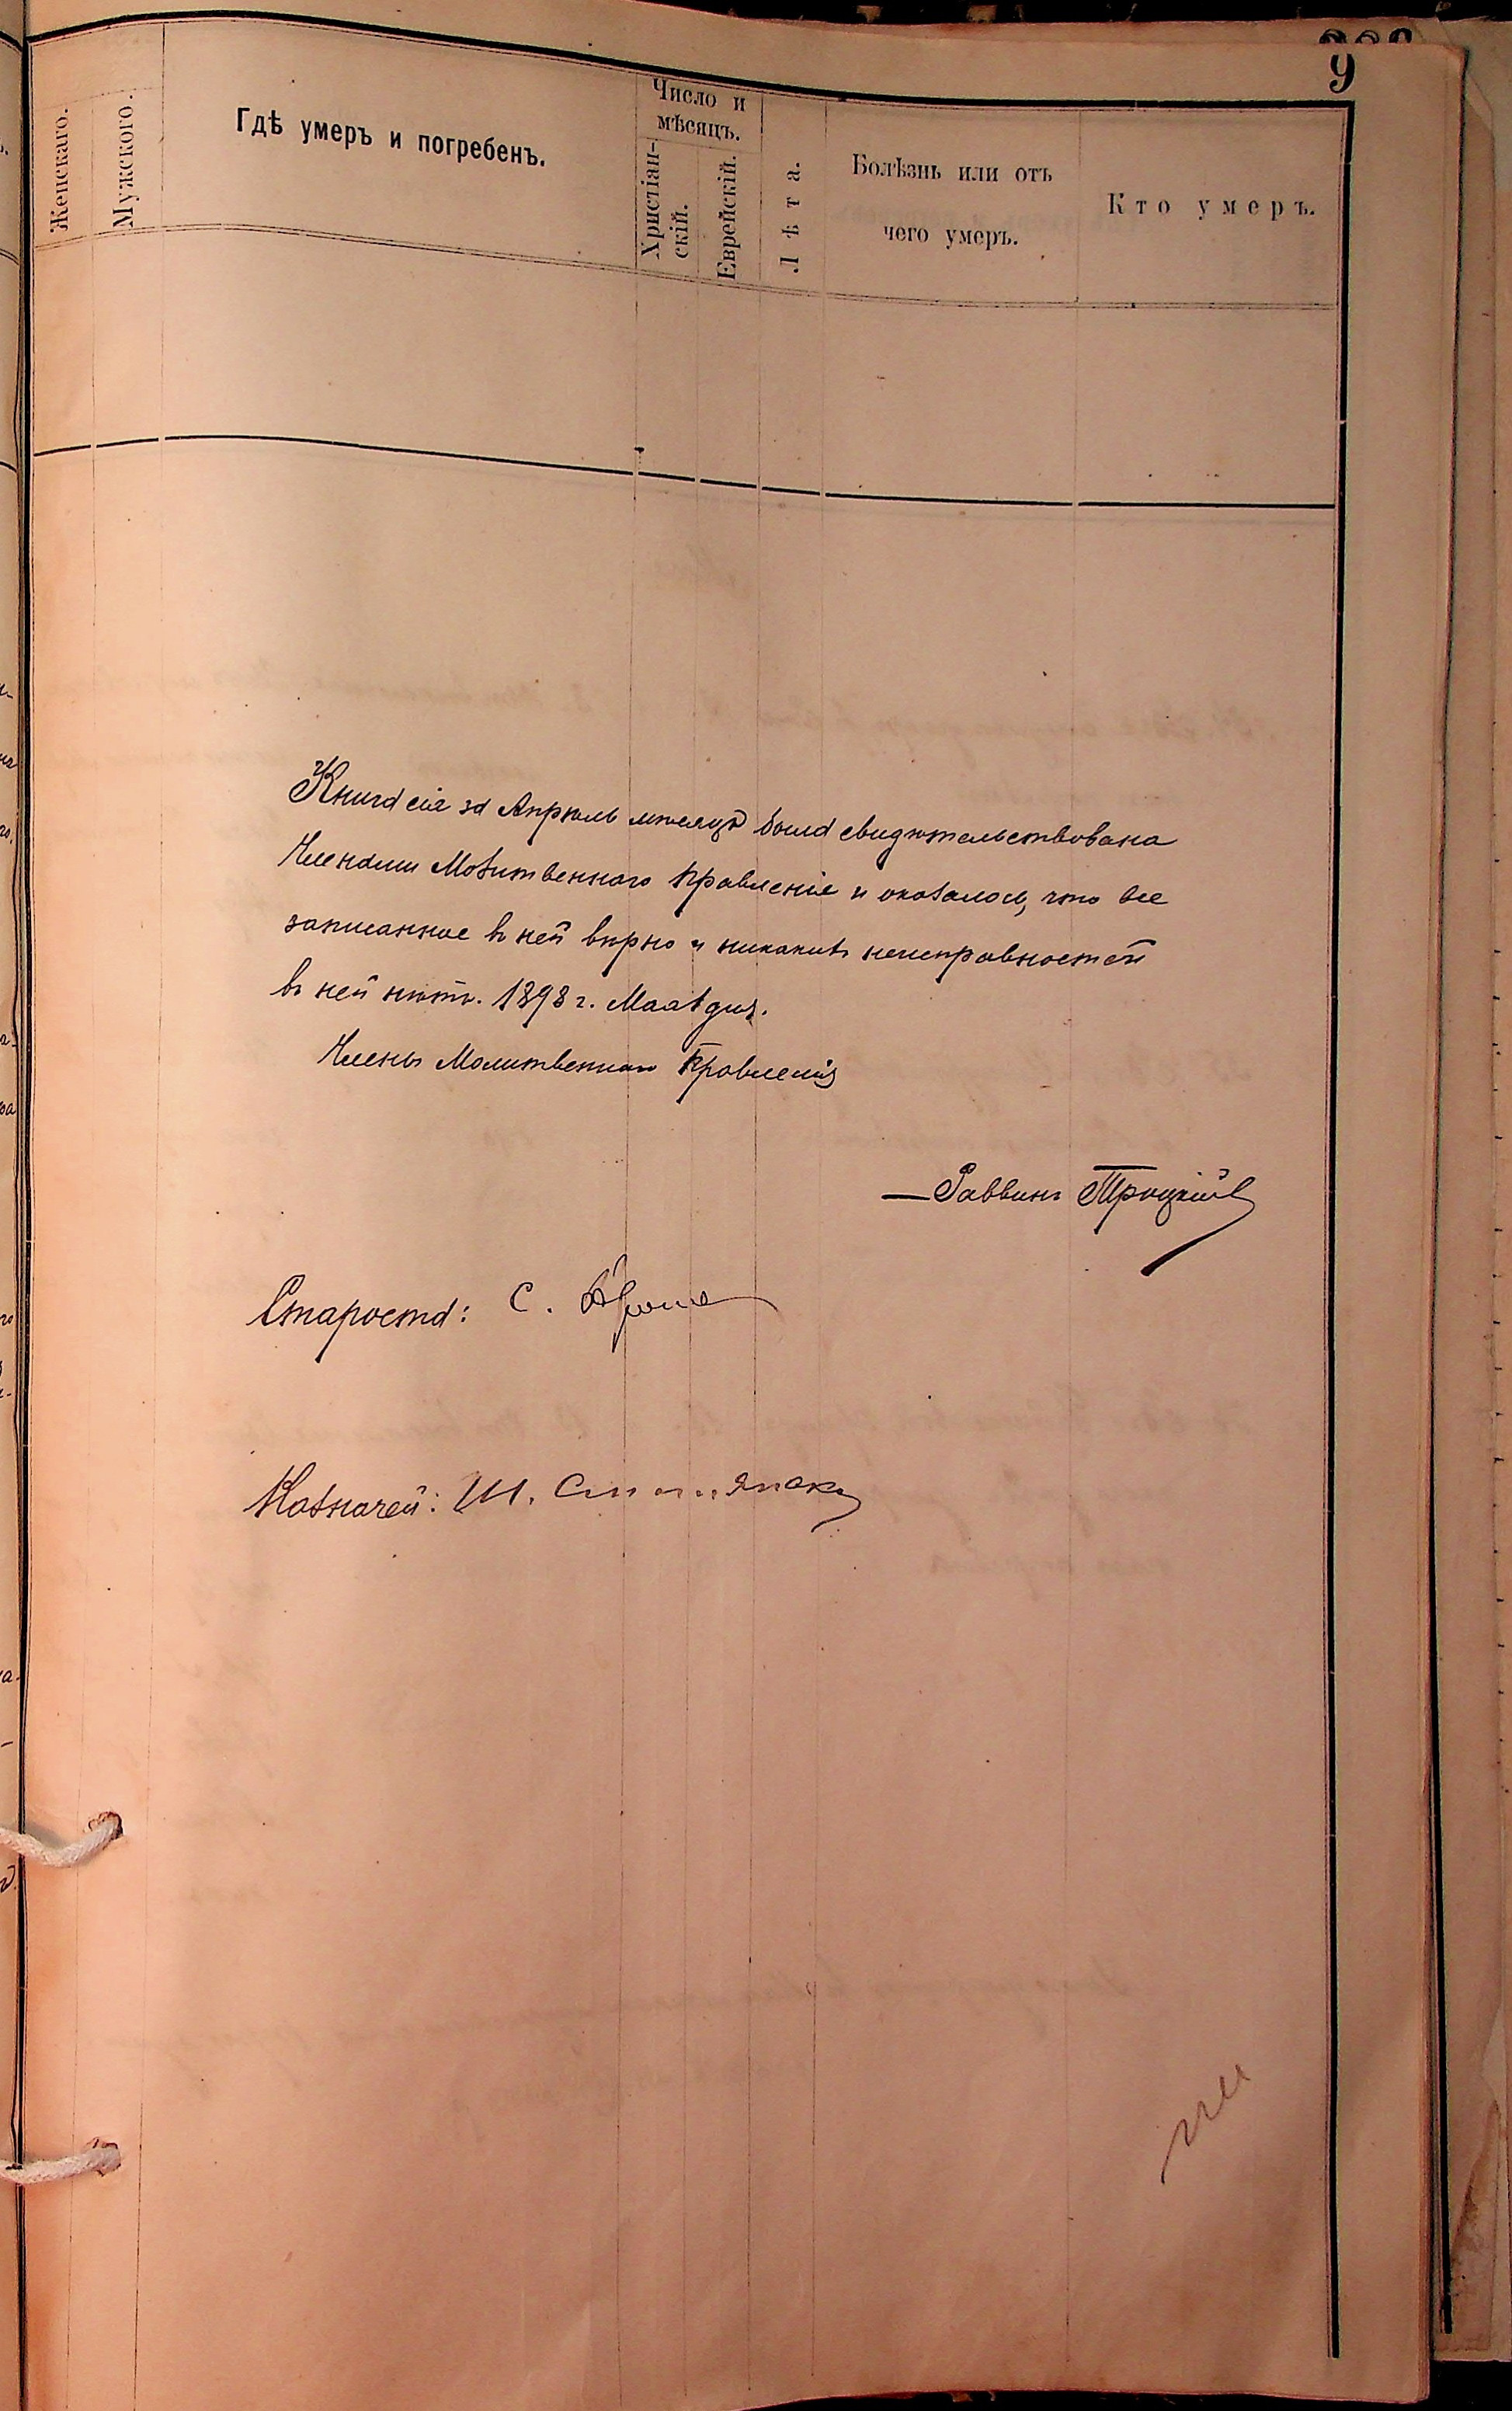 9
Женскаго.
Мужского.
Гдѣ умеръ и погребенъ.
Число и
мѣсяцъ.
Христіан-
скій.
Еврейскій.
Лѣта.
Болѣзнь или отъ
чего умеръ.
Кто умеръ.
Книга сія за Апрѣль мѣсяцъ была свидѣтельствована
Членами Молитвеннаго Правленія и оказалось, что все
записанное въ ней вѣрно и никакихъ неисправностей
въ ней нѣтъ. 1898 г. Мая 1 дня.
Члены Молитвеннаго Правленія
Раввинъ Троцкій
Староста: С.
Казначей: Ш.